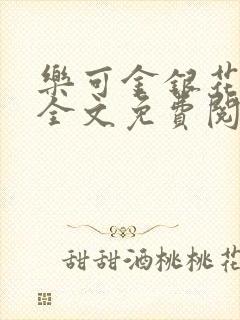 樂可金銀花
全文免費閱
甜甜酒桃桃花